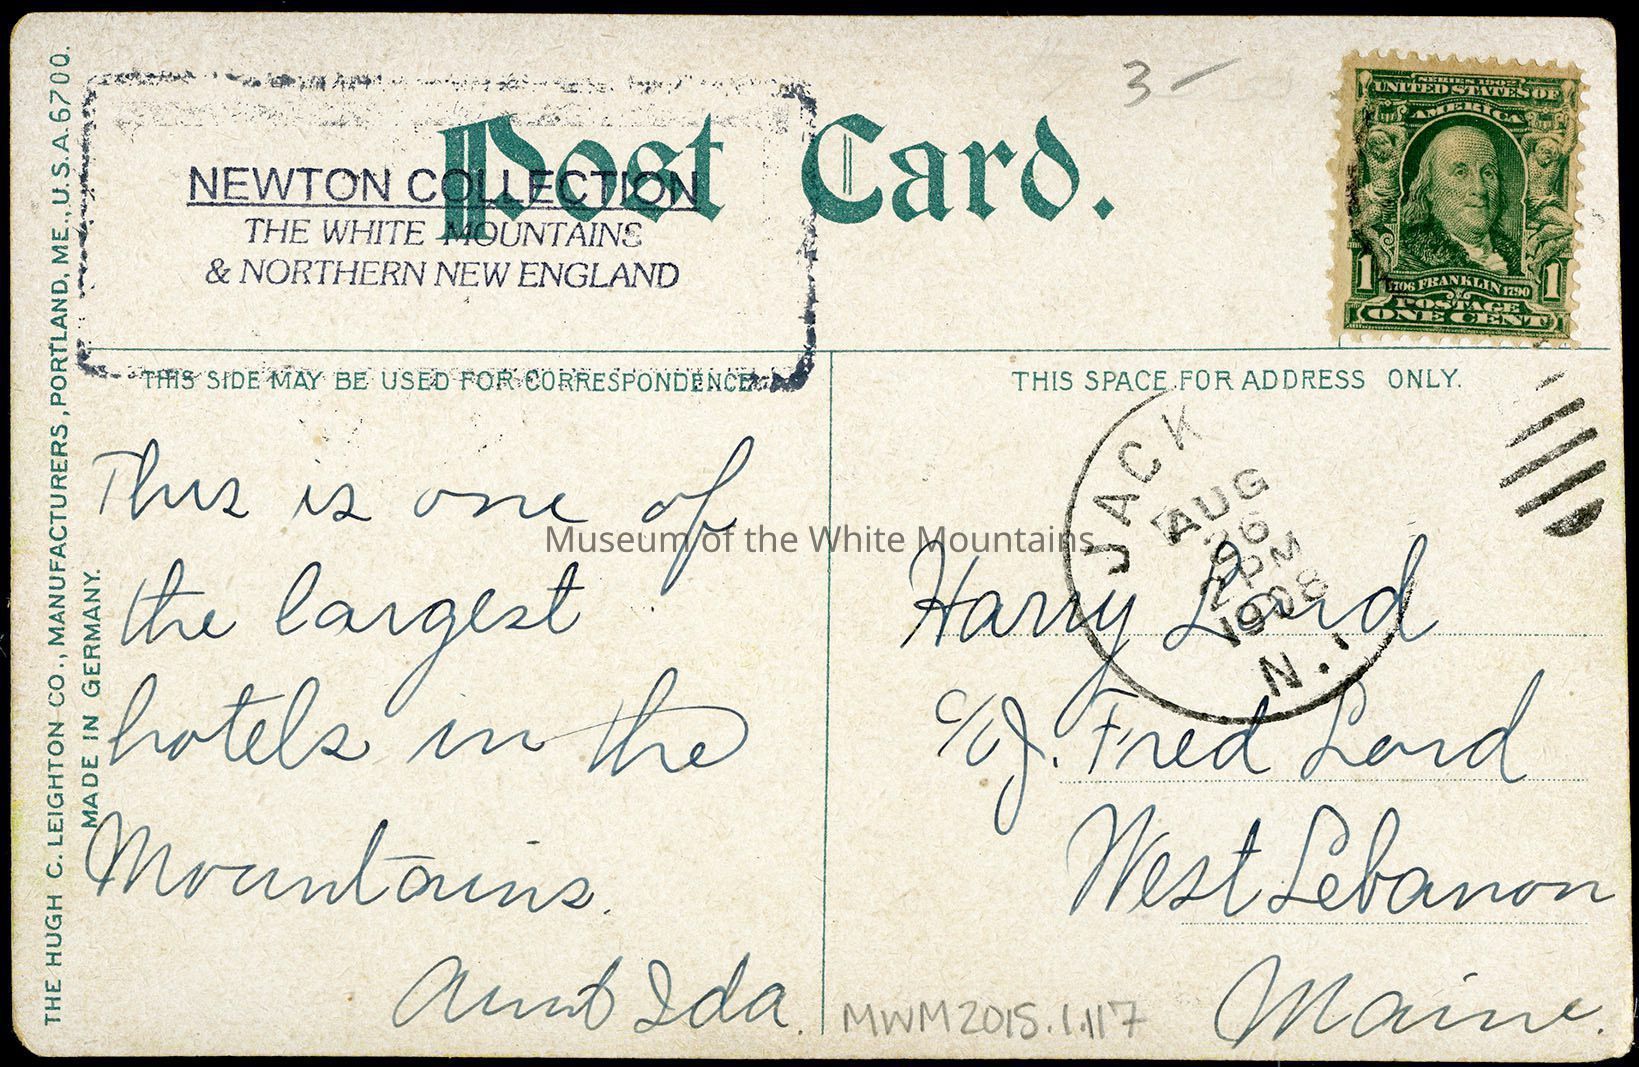 THE HUGH C. LEIGHTON CO., MANUFACTURERS, PORTLAND, ME., U.S.A. 6700.
MADE IN GERMANY.
Post Card.
3 –
NEWTON COLLECTION
THE WHITE MOUNTAINS
& NORTHERN NEW ENGLAND
SERIES 1902
UNITED STATES OF
AMERICA
1706 FRANKLIN 1790
1 1
POSTAGE
ONE CENT
THIS SIDE MAY BE USED FOR CORRESPONDENCE
THIS SPACE FOR ADDRESS ONLY.
This is one of
the largest
hotels in the
Mountains.
Aunt Ida.
JACK
AUG
26
PM
1908
N.
Museum of the White Mountains
Harry Lord
c/o J. Fred Lord
West Lebanon
Maine.
MWM2015.1.117